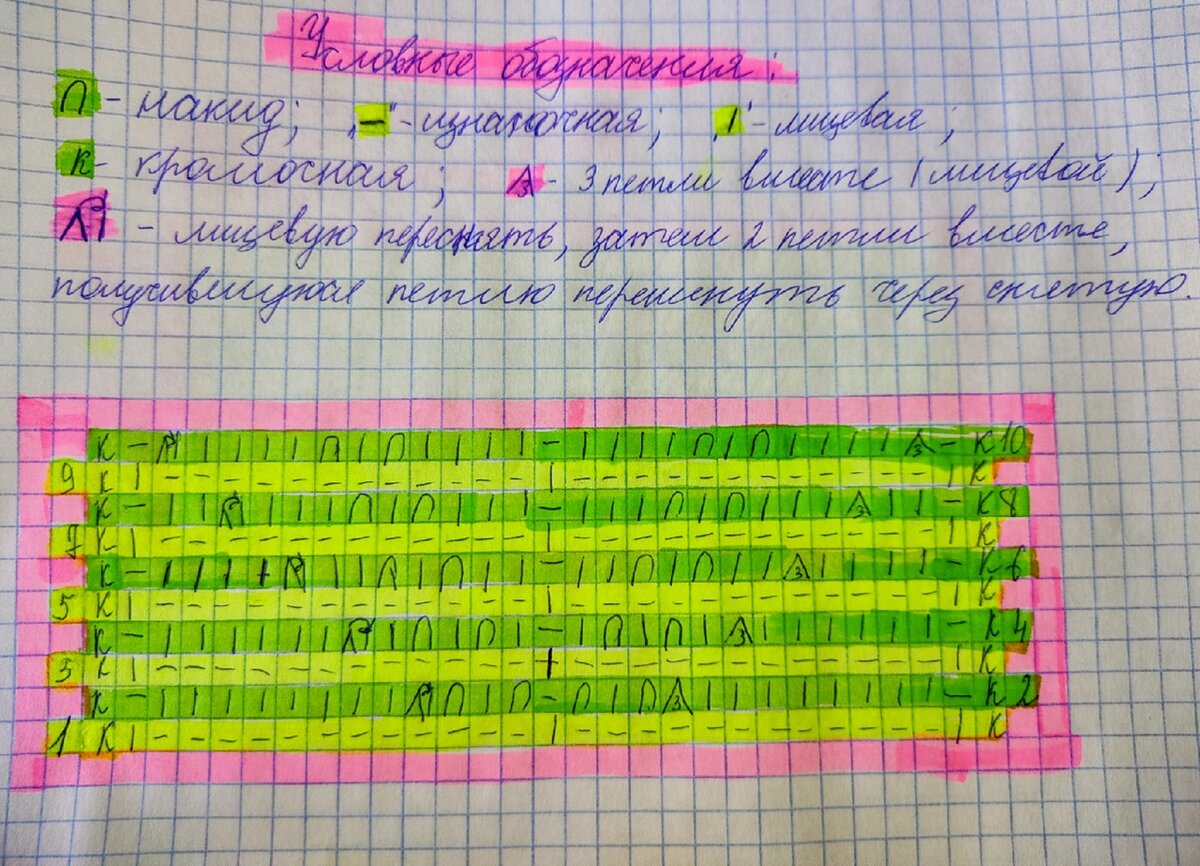 Условные обозначения:
∩ - накид; "–" - изнаночная; "I" - лицевая;
К - кромочная; 3 - 3 петли вместе (лицевой);
- лицевую переснять, затем 2 петли вместе,
получившуюся петлю перекинуть через снятую.
К 3 К 10
9 К К
К 3 К 8
7 К К
К 3 К 6
5 К К
К 3 К 4
3 К К
К 3 К 2
1 К К